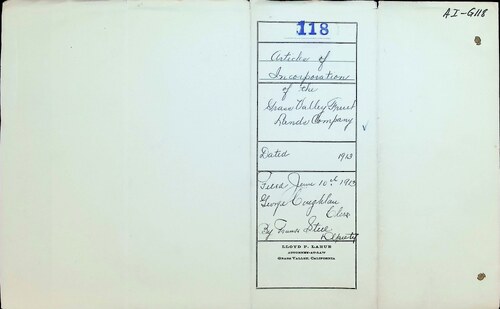 AI-G118
118
Articles of
Incorporation
of the
Grass Valley Fruit
Lands Company
Dated 1913
Filed June 10th 1913
George Coughlan
Clerk
By Steel
Deputy
LLOYD P. LARUE
ATTORNEY-AT-LAW
GRASS VALLEY, CALIFORNIA